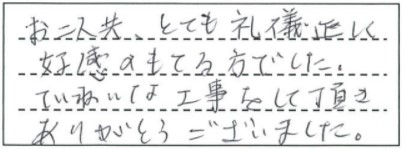 お二人共、とても礼儀正しく
好感のもてる方でした。
ていねいな工事をして頂き
ありがとうございました。